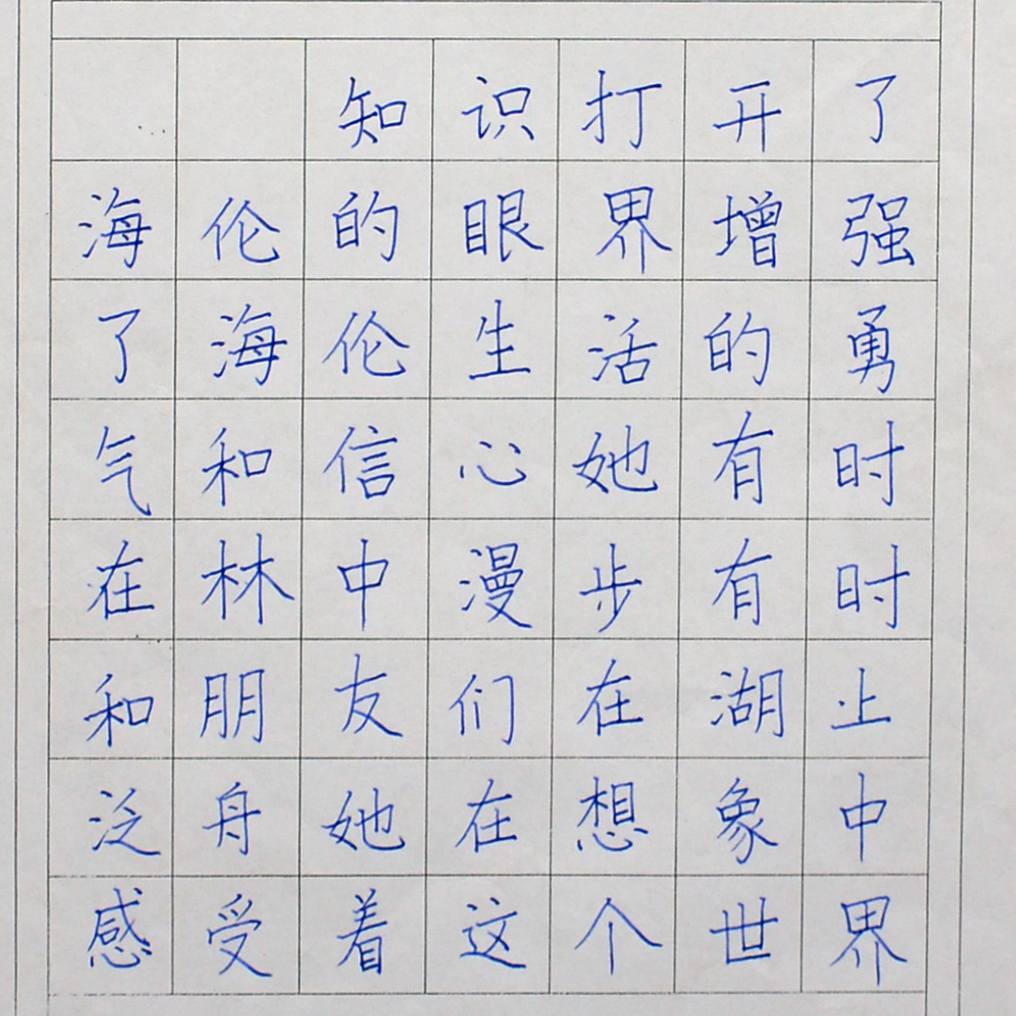 知识打开了
海伦的眼界增强
了海伦生活的勇
气和信心她有时
在林中漫步有时
和朋友们在湖上
泛舟她在想象中
感受着这个世界